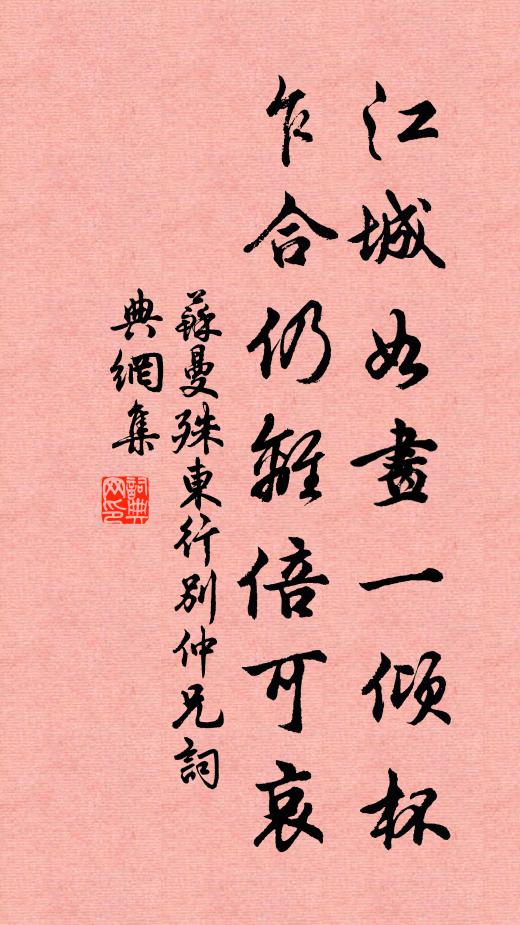 江城如畫一傾杯
乍合仍離倍可哀
蘇曼殊東行別仲兄詞
典網集
詞典網印